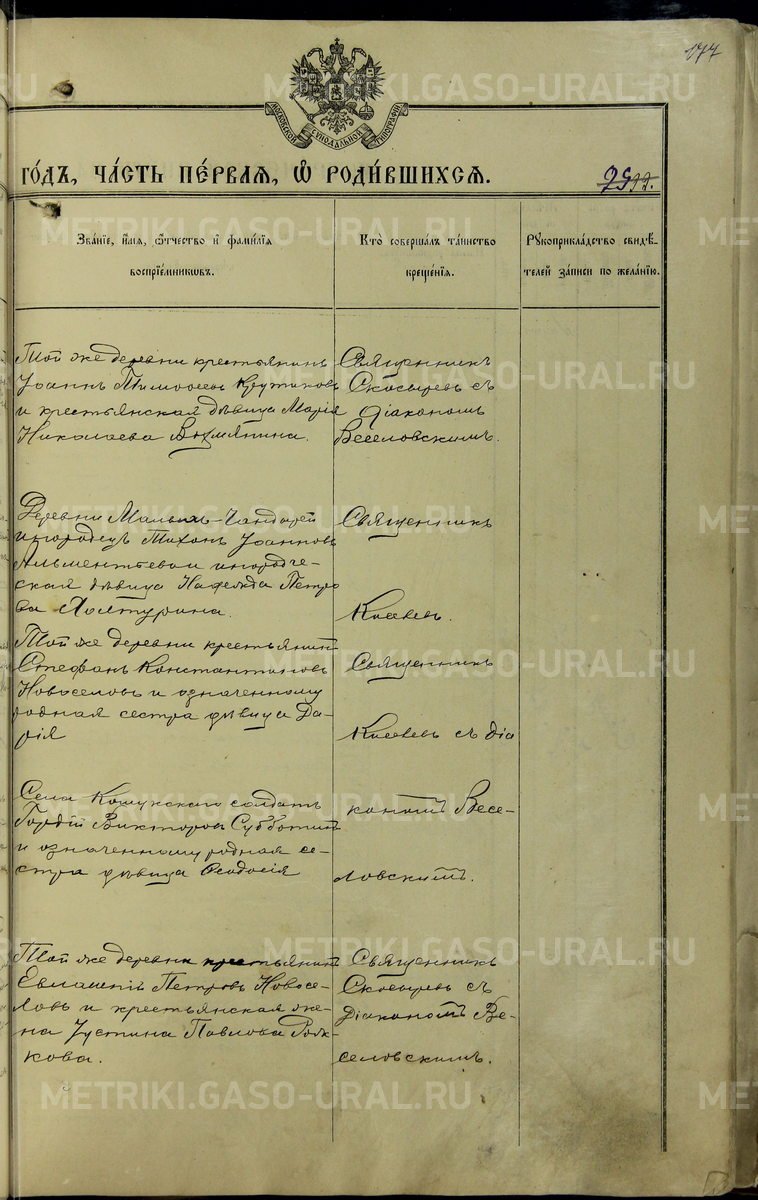 177
МОСКОВСКОЙ СѴНОДАЛЬНОЙ ТИПОГРАФІИ
ГО́ДЪ, ЧА́СТЬ ПЕ́РВАЯ, Ѡ РОДИ́ВШИХСѦ.
Зва́нїе, и́мѧ, ѻ҆́тчество и҆ фами́лїѧ
воспрїе́мникѡвъ.
Кто̀ соверша́лъ та́инство
креще́нїѧ.
Рꙋкоприкла́дство свидѣ́-
телей за́писи по жела́нїю.
Той же деревни крестьянинъ
Іоаннъ Тимоѳеевъ Крутиковъ
и крестьянская дѣвица Марія
Николаева
Священникъ
Скосыревъ съ
діакономъ
Веселовскимъ.
Деревни Малыхъ-Чандырей
инородецъ Тихонъ Іоанновъ
Альментьевъ и инородче-
ская дѣвица Надежда Петро
ва Халтурина.
Священникъ
Киселевъ.
Той же деревни крестьянинъ
Стефанъ Константиновъ
Новоселовъ и означенному
родная сестра дѣвица Да-
рія
Священникъ
Киселевъ съ діа
Села Кошукскаго солдатъ
Гордій Викторовъ Субботинъ
и означенному родная се-
стра дѣвица Ѳеодосія
кономъ Весе-
ловскимъ.
Той же деревни крестьянинъ
Евлашпій Петровъ Новосе-
ловъ и крестьянская же-
на Іустина Павлова
кова.
Священникъ
Скосыревъ съ
діакономъ Ве-
селовскимъ.
METRIKI.GASO-URAL.RU